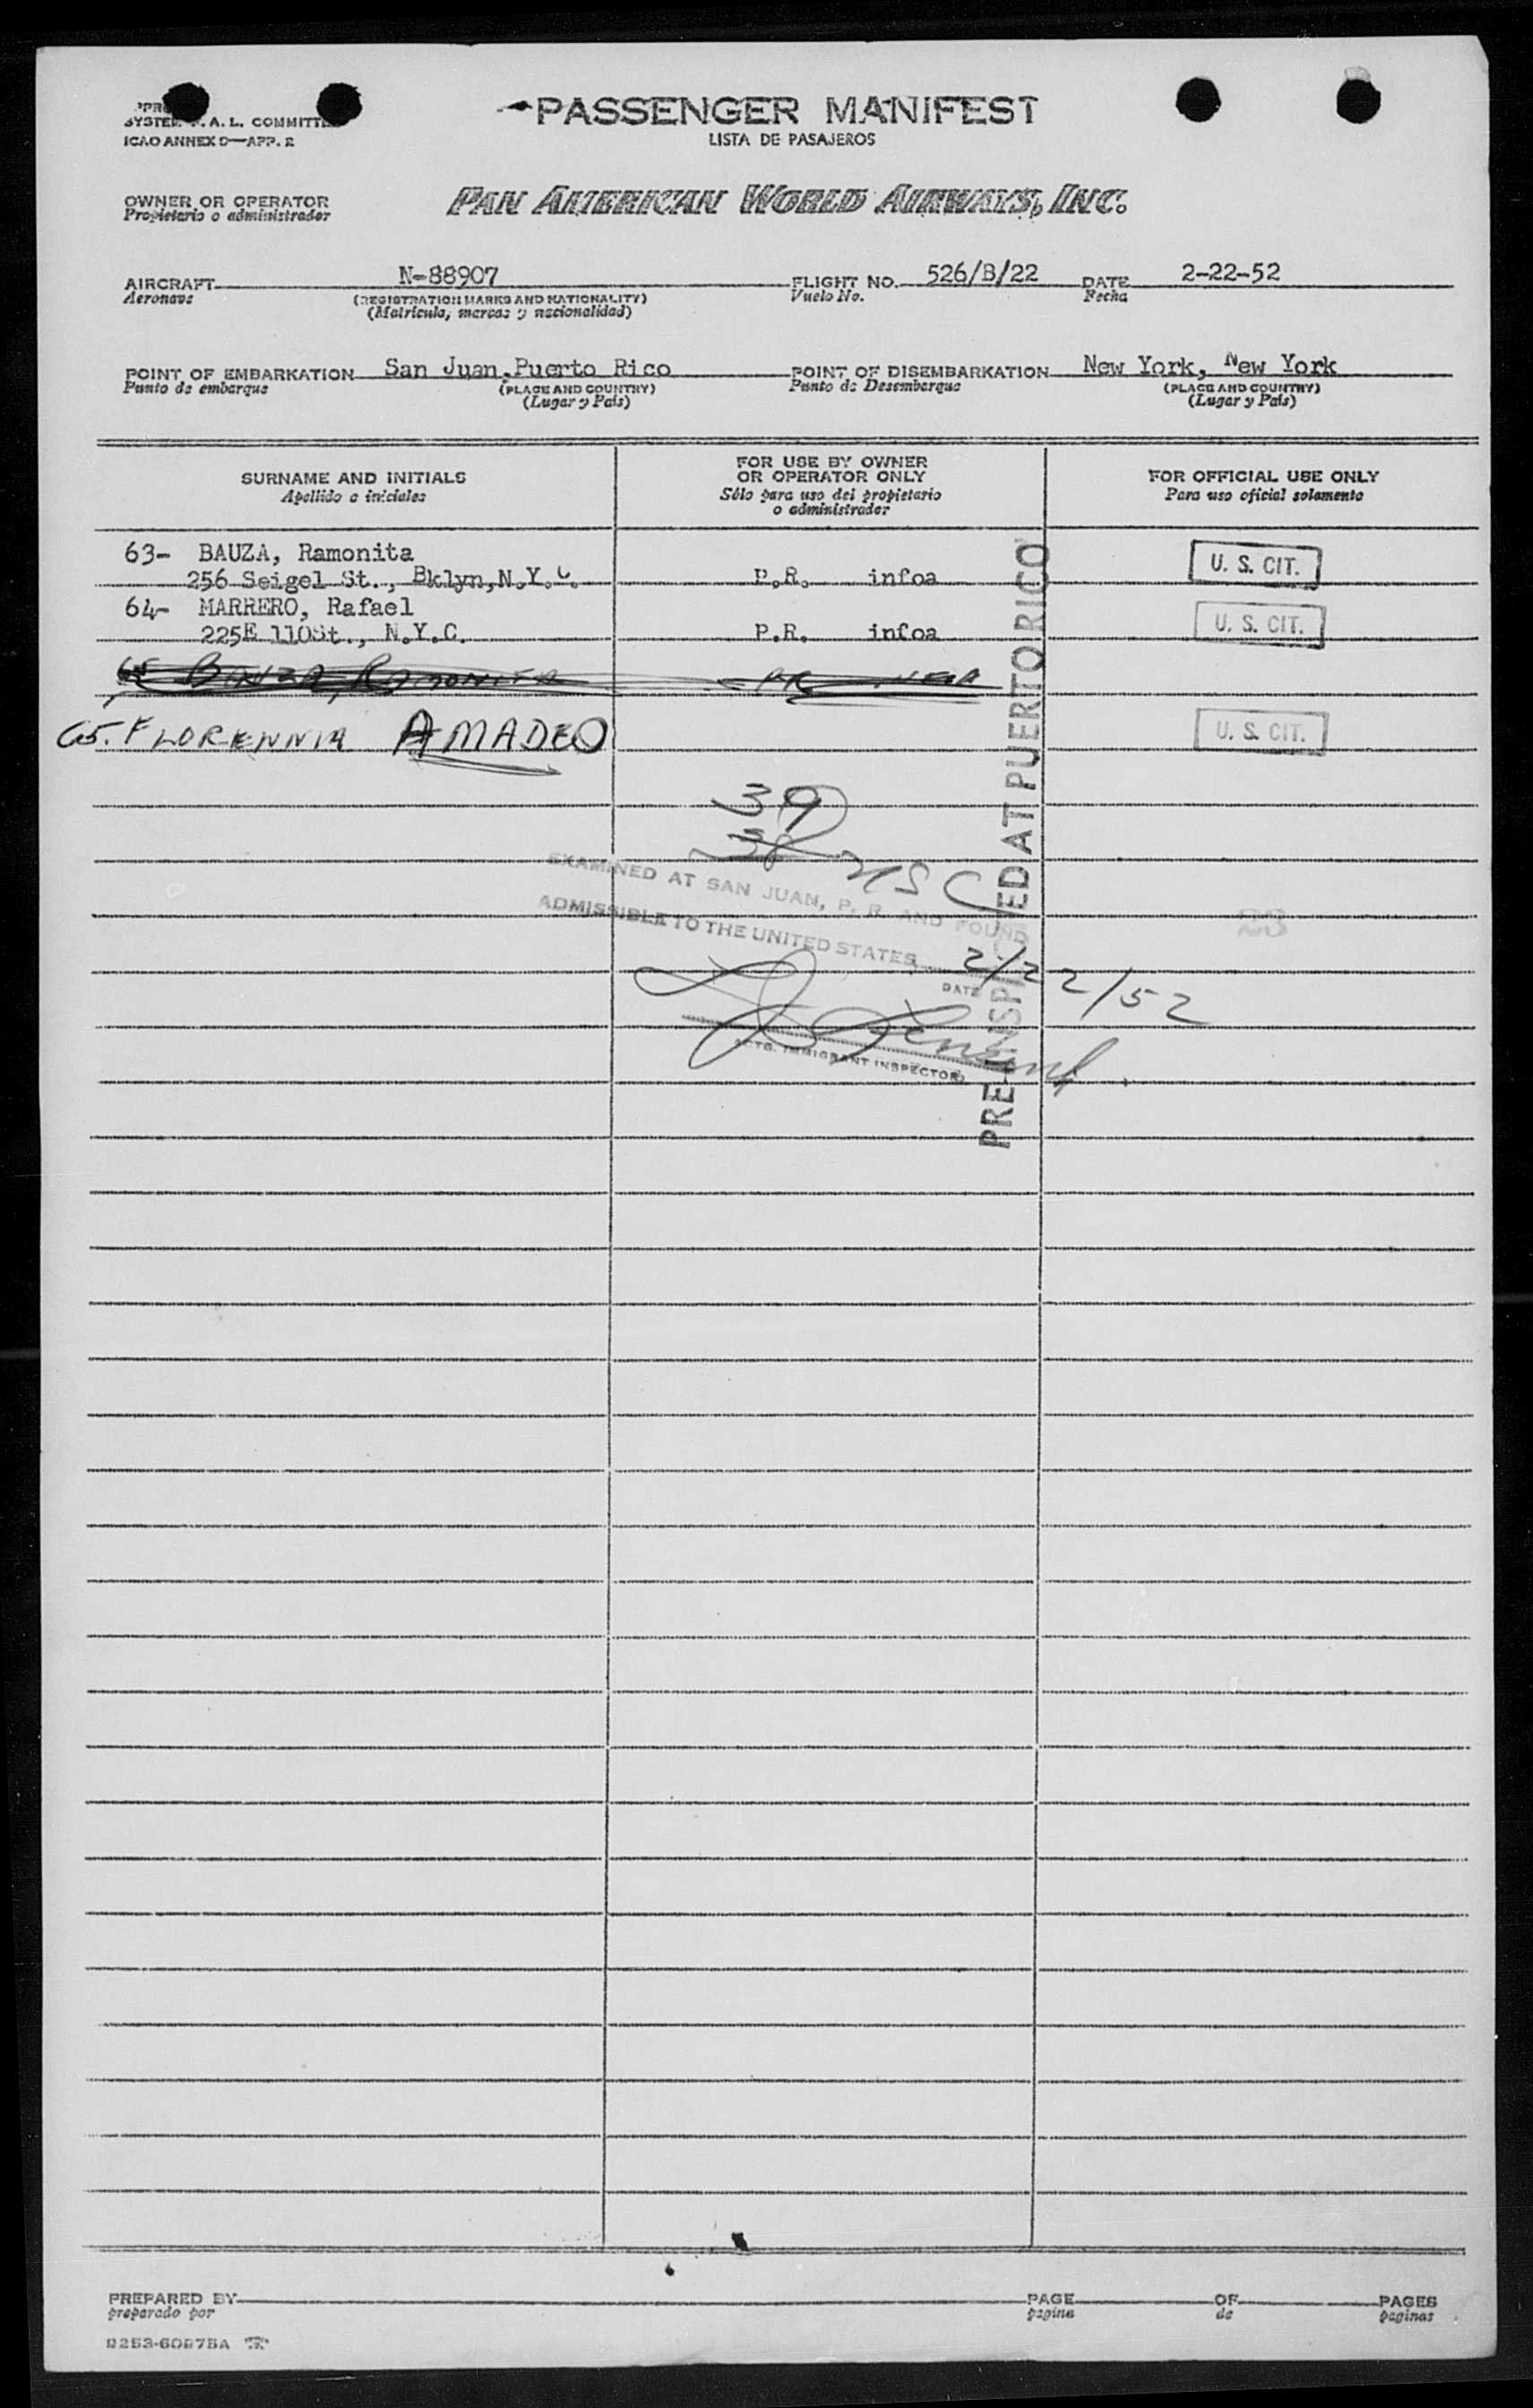 SYSTEM F.A.L. COMMITTEE
ICAO ANNEX 9—APP. 2
PASSENGER MANIFEST
LISTA DE PASAJEROS
OWNER OR OPERATOR
Propietario o administrador
PAN AMERICAN WORLD AIRWAYS, INC.
AIRCRAFT N-88907 FLIGHT NO. 526/B/22 DATE 2-22-52
Aeronave (REGISTRATION MARKS AND NATIONALITY) Vuelo No. Fecha
(Matricula, marcas y nacionalidad)
POINT OF EMBARKATION San Juan, Puerto Rico POINT OF DISEMBARKATION New York, New York
Punto de embarque (PLACE AND COUNTRY) Punto de Desembarque (PLACE AND COUNTRY)
(Lugar y País) (Lugar y País)
SURNAME AND INITIALS
Apellido e iniciales
FOR USE BY OWNER
OR OPERATOR ONLY
Sólo para uso del propietario
o administrador
FOR OFFICIAL USE ONLY
Para uso oficial solamente
63- BAUZA, Ramonita
256 Seigel St., Bklyn,N.Y.C. P.R. infoa U. S. CIT.
64- MARRERO, Rafael
225E 110St., N.Y.C. P.R. infoa U. S. CIT.
65 BAUZA, RAMONITA PR
65. FLORENNIA AMADEO U. S. CIT.
39
38 USC
EXAMINED AT SAN JUAN, P. R. AND FOUND
ADMISSIBLE TO THE UNITED STATES
2/22/52
DATE
ACTG. IMMIGRANT INSPECTOR
PRE-INSPECTED AT PUERTO RICO
23
PREPARED BY PAGE OF PAGES
preparado por pagina de paginas